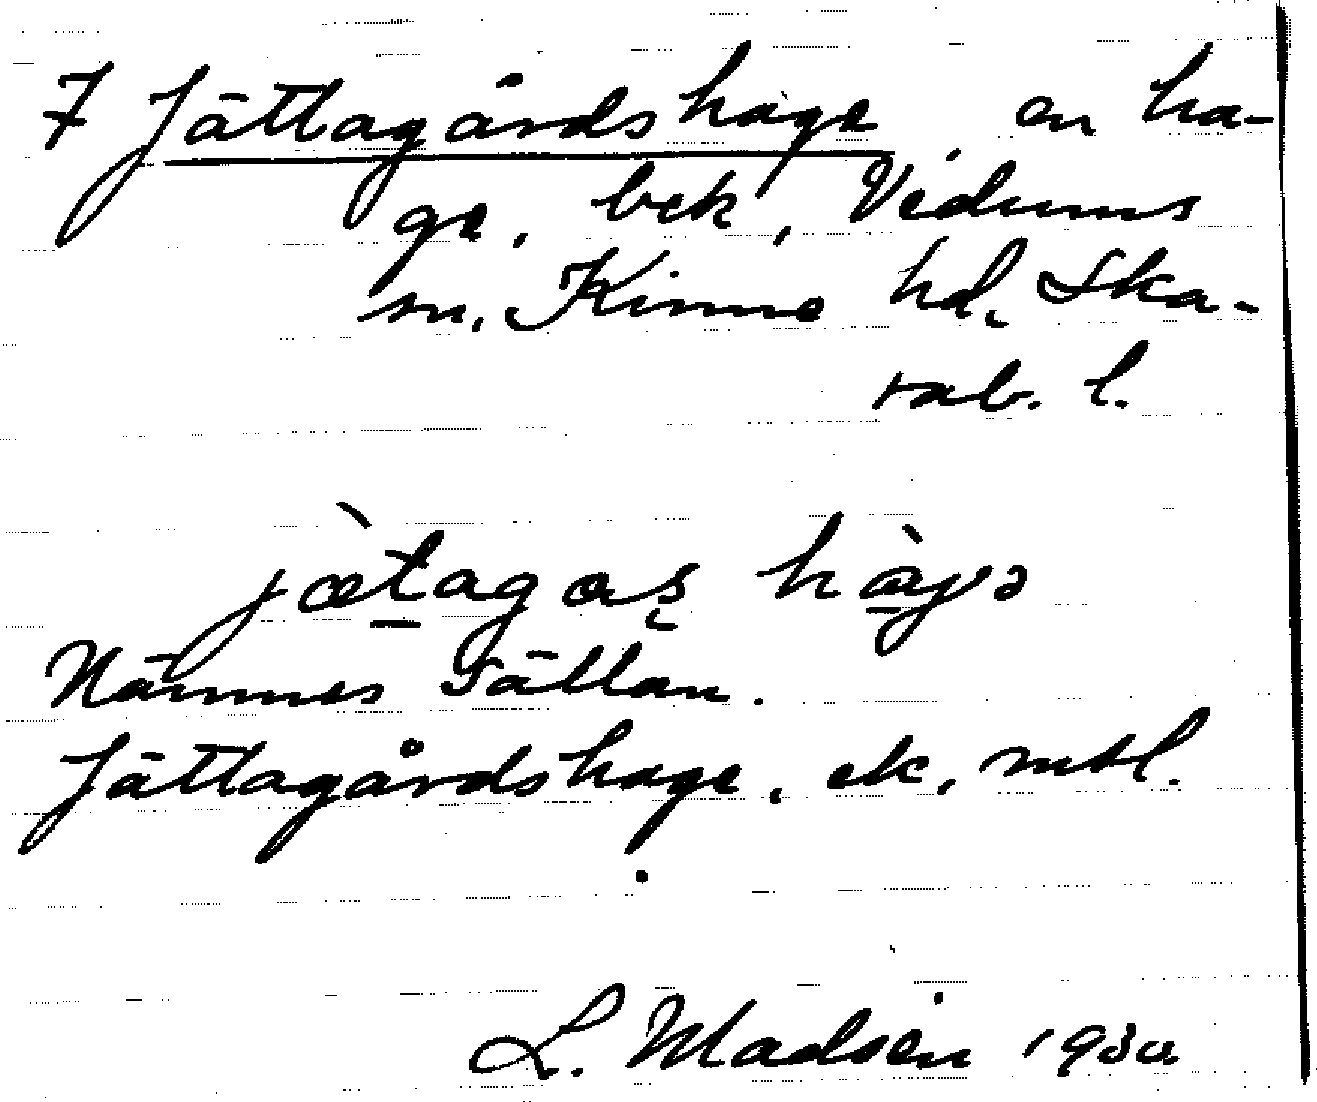 7 Jättagårdshage en ha-
ge, bek, Vedums
sn. Kinne hd. Ska-
rab. l.
jætagaṣ hàγə
Nämnes sällan.
Jättagårdshage, ek, mtl.
L. Madsén 1930